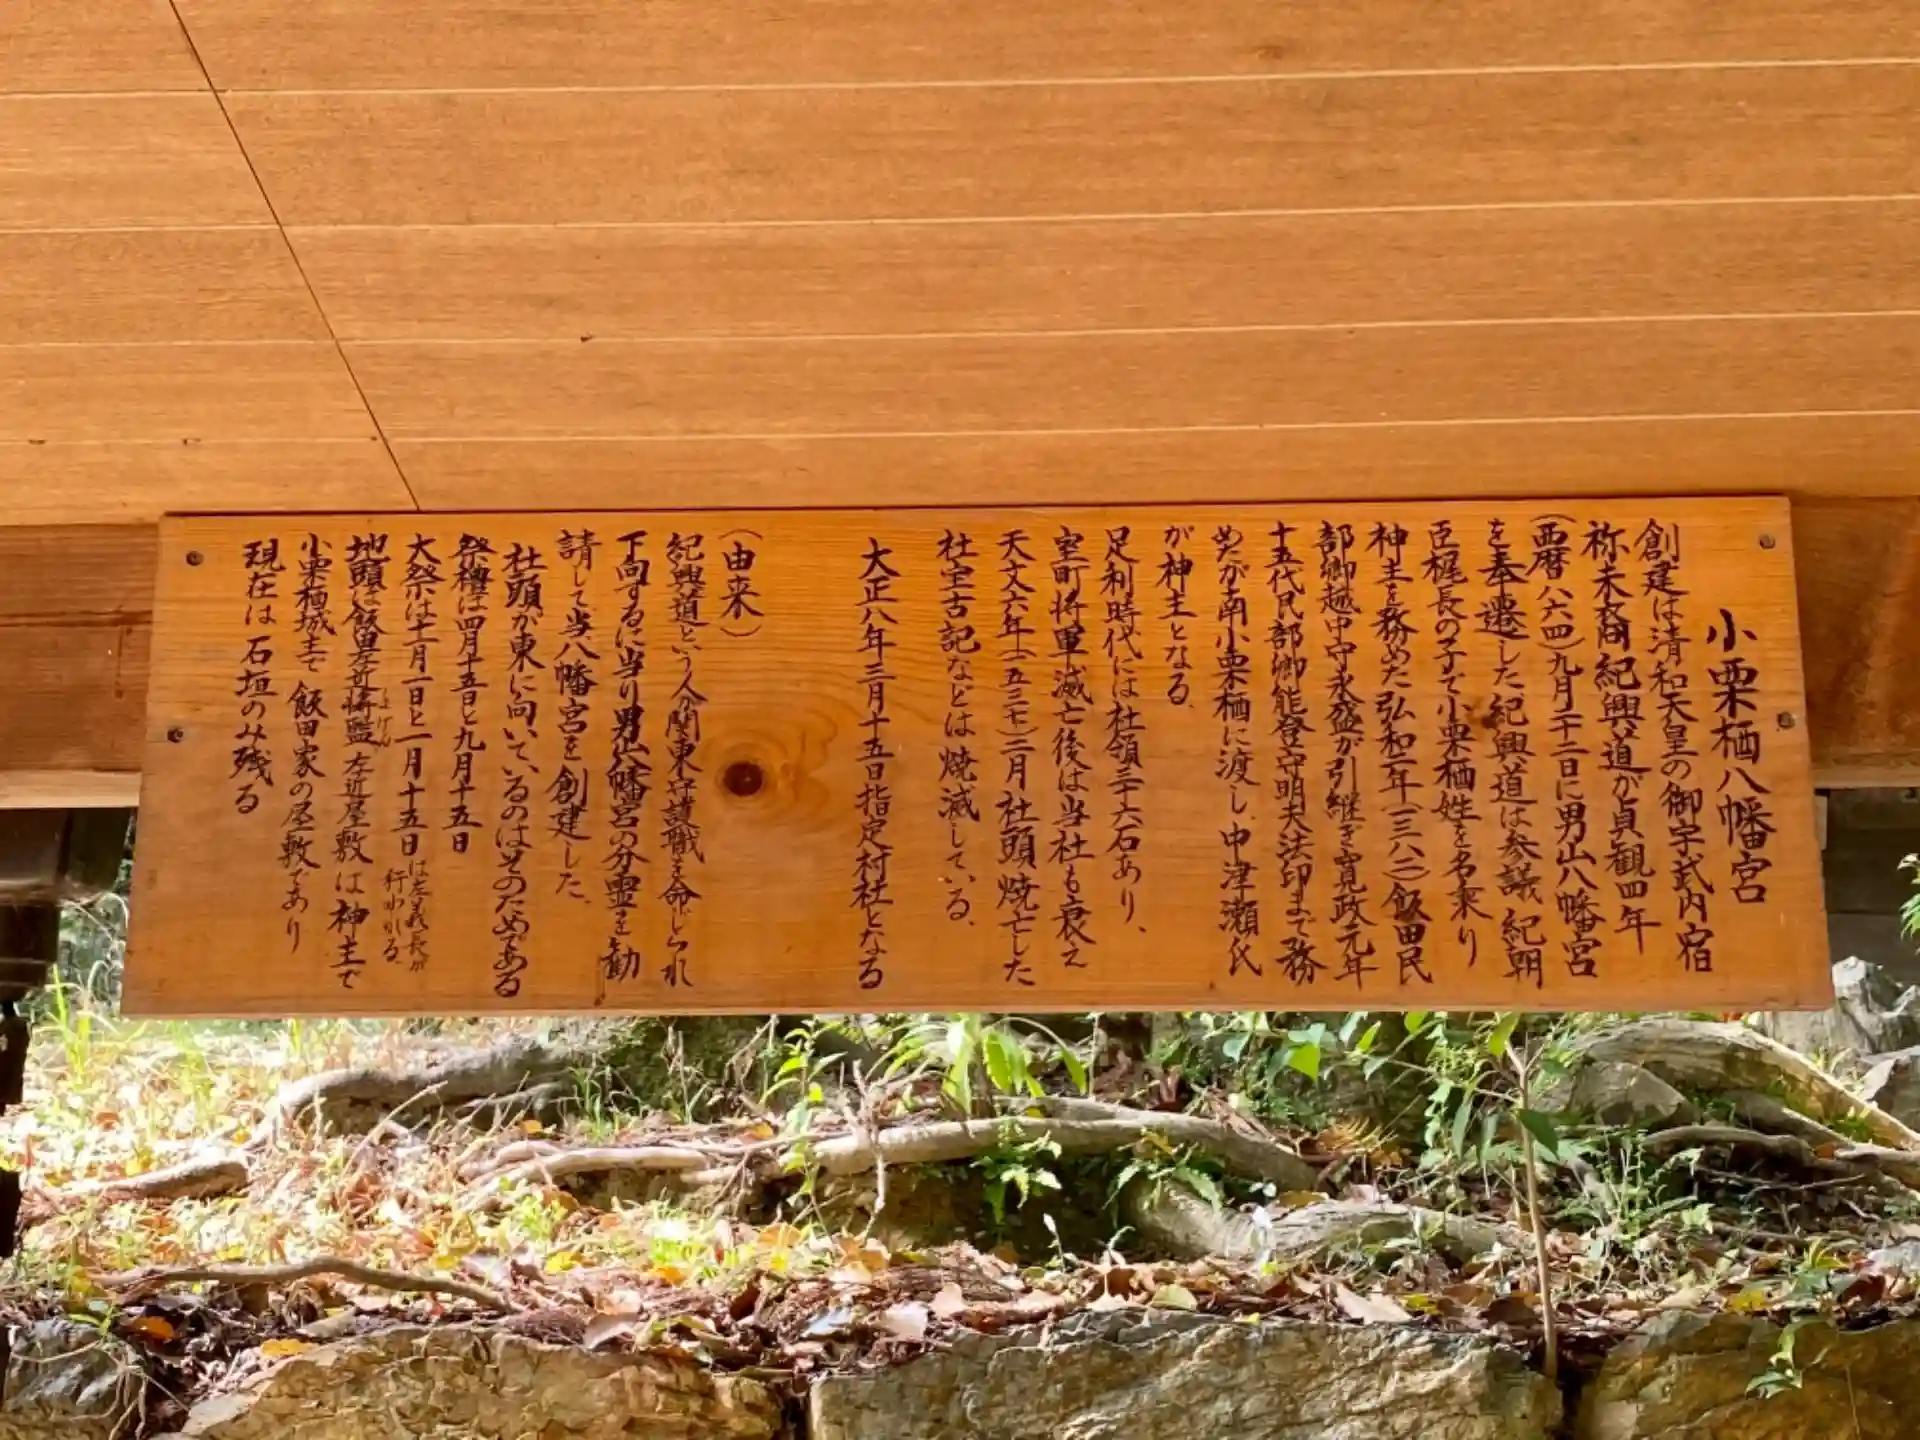 小栗栖八幡宮
創建は清和天皇の御宇武内宿
祢末裔紀興道が貞観四年
(西暦八六四)九月二十二日に男山八幡宮
を奉遷した紀興道は参議紀朝
臣梶長の子で小栗栖姓を名乗り
神主を務めた弘和二年(一三八二)飯田民
部卿越中守永盛が引継ぎ寛政元年
十五代民部卿能登守明夫法印まで務
めたが南小栗栖に渡し、中津瀬氏
が神主となる、
足利時代には社領三十六石あり、
室町将軍滅亡後は当社も衰え
天文六年(一五三七)二月社頭焼亡した
社宝古記などは焼滅している、
大正八年三月十五日指定村社となる
(由来)
紀興道という人が関東守護職を命じられ
下向するに当り男山八幡宮の分霊を勧
請して当八幡宮を創建した、
社頭が東に向いているのはそのためである
祭禮は四月十五日と九月十五日
大祭は十一月一日と一月十五日は左義長が行われる、
地頭は飯田左近将監左近屋敷は神主で
しょうげん
小栗栖城主で飯田家の屋敷であり
現在は石垣のみ残る